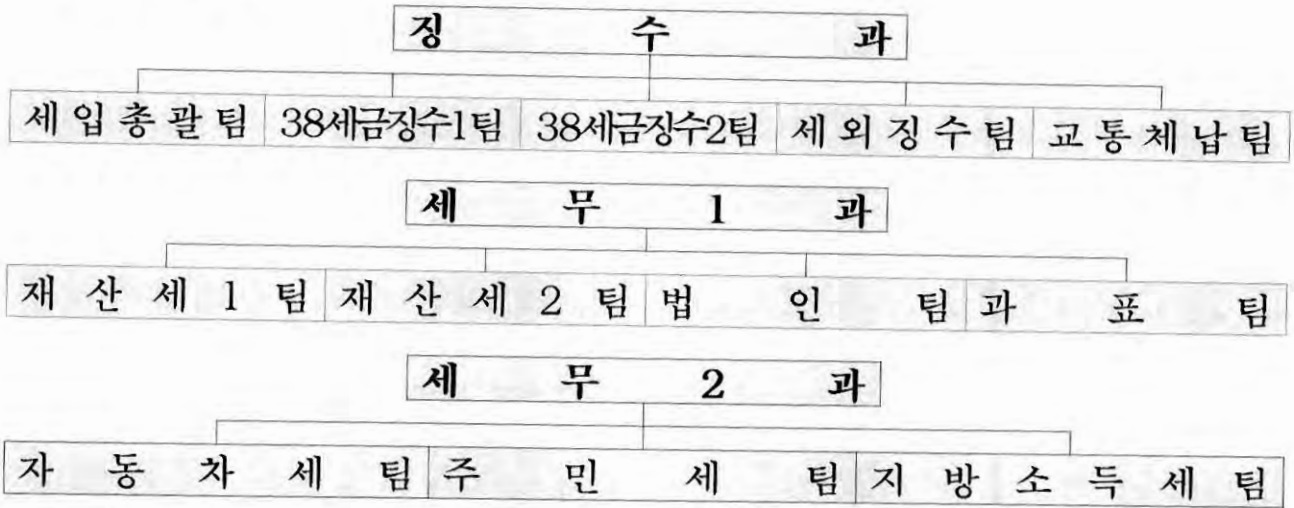 징 수 과
세입총괄팀 38세금징수1팀 38세금징수2팀 세외징수팀 교통체납팀
세 무 1 과
재 산 세 1 팀 재 산 세 2 팀 법 인 팀 과 표 팀
세 무 2 과
자 동 차 세 팀 주 민 세 팀 지 방 소 득 세 팀